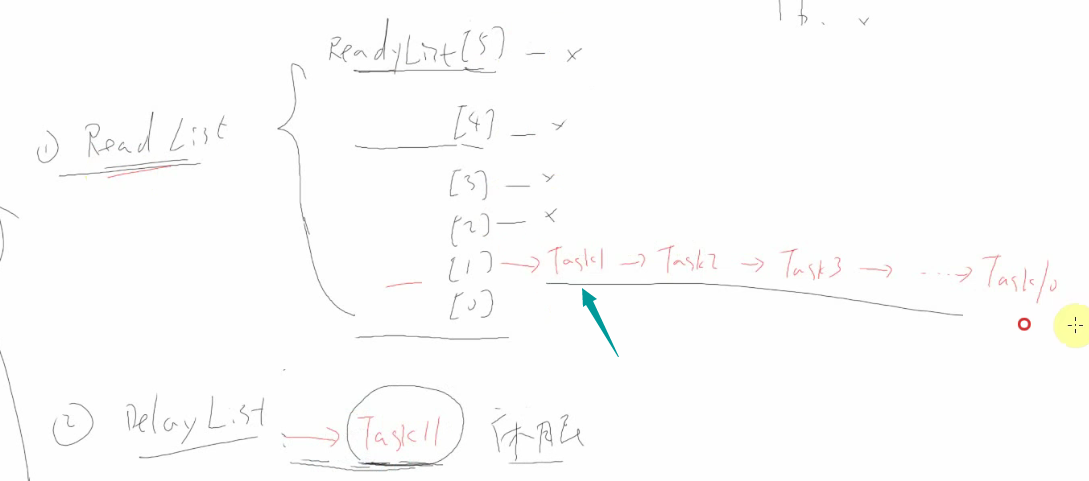 1b. x
ReadyList[5] — x
[4] — x
① Read List
[3] — x
[2] — x
[1] → Task1 → Task2 → Task3 → ····→ Task10
[0]
② DelayList → Task11 休眠